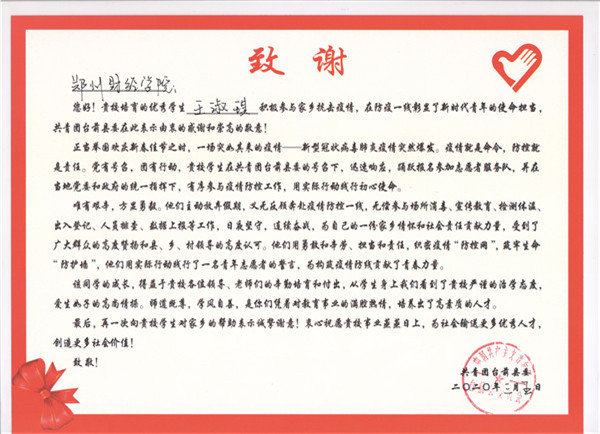 致谢
郑州财经学院:
您好！贵校培育的优秀学生 王淑琪 积极参与家乡抗击疫情，在防疫一线彰显了新时代青年的使命担当，
共青团台前县委在此表示由衷的感谢和崇高的敬意！
正当举国欢庆新春佳节之时，一场突如其来的疫情——新型冠状病毒肺炎疫情突然爆发。疫情就是命令，防控就
是责任。党有号召，团有行动，贵校学生在共青团台前县委的号召下，迅速响应，踊跃报名参加志愿者服务队，并在
当地党委和政府的统一指挥下，有序参与疫情防控工作，用实际行动践行初心使命。
唯有艰辛，方显勇毅。他们主动放弃假期，义无反顾奔赴疫情防控一线，无偿参与场所消毒、宣传教育、检测体温、
出入登记、人员排查、数据上报等工作，日夜坚守，连续奋战，为自己的一份家乡情怀和社会责任贡献力量，受到了
广大群众的高度赞扬和县、乡、村领导的高度认可。他们用勇敢和辛劳、担当和责任，织密疫情“防控网”，筑牢生命
“防护墙”，他们用实际行动践行了一名青年志愿者的誓言，为构筑疫情防线贡献了青春力量。
该同学的成长，得益于贵校各位领导、老师们的辛勤培育和付出，从学生身上我们看到了贵校严谨的治学态度，
爱生如子的高尚情操。师道既尊，学风自善，是你们凭着对教育事业的满腔热情，培养出了高素质的人才。
最后，再一次向贵校学生对家乡的帮助表示诚挚谢意！衷心祝愿贵校事业蒸蒸日上，为社会输送更多优秀人才，
创造更多社会价值！
致敬！
共青团台前县委
二〇二〇年三月 日